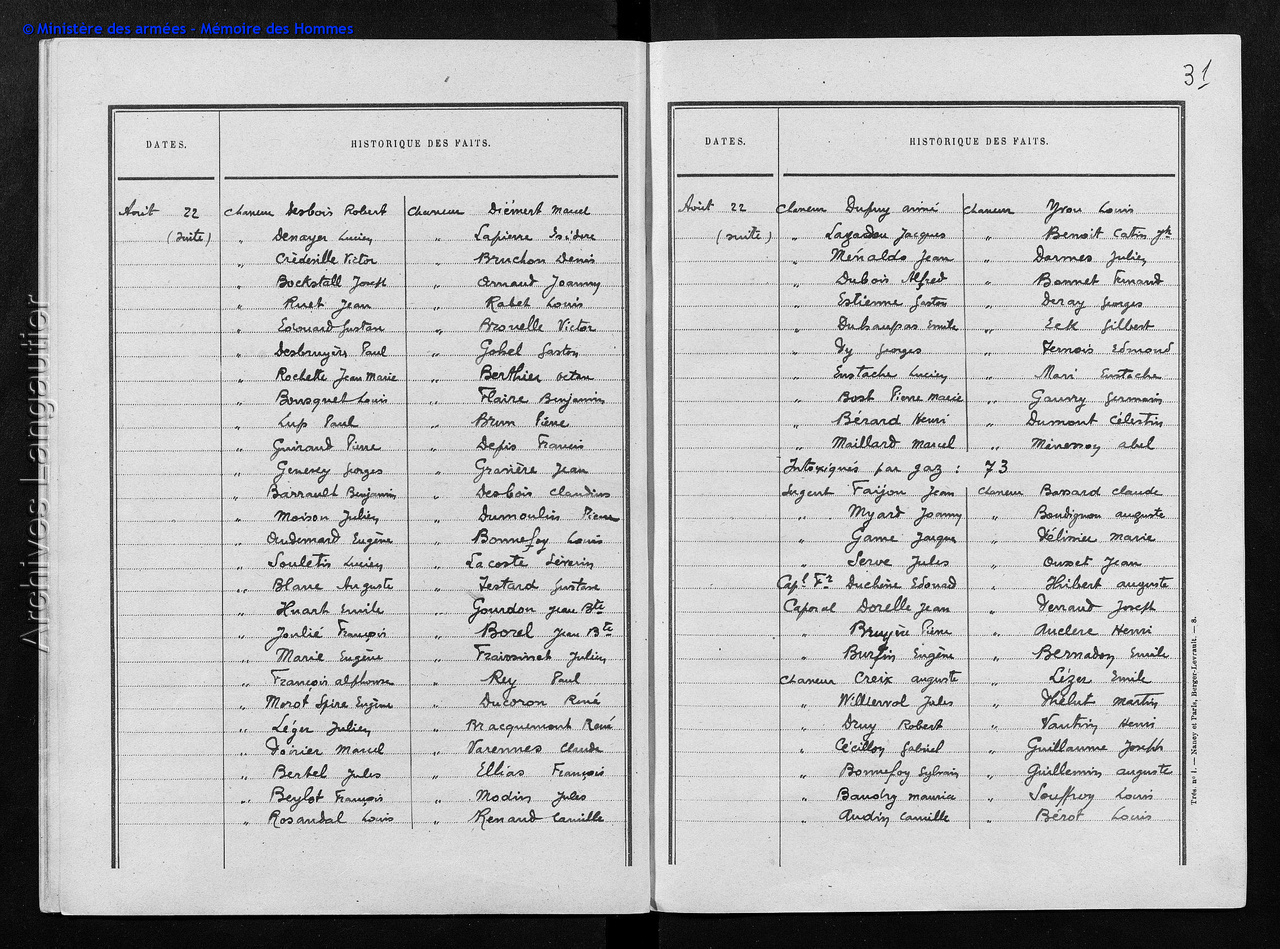 © Ministère des armées - Mémoire des Hommes
Archives Langautier
DATES. HISTORIQUE DES FAITS.
Août 22 Chasseur Desbois Robert Chasseur Diémert Marcel
(suite) " Denayer Lucien " Lapierre Isidore
" Crèdeville Victor " Bruchon Denis
" Bockstall Joseph " Arnaud Joanny
" Ruet Jean " Rabet Louis
" Edouard Gustave " Bronelle Victor
" Desbruyère Paul " Gobel Gaston
" Rochette Jean Marie " Berthier Octave
" Bousquet Louis " Flaire Benjamin
" Lup Paul " Brun Pierre
" Guiraud Pierre " Depis Francis
" Genevey Georges " Granière Jean
" Barrault Benjamin " Desbois Claudius
" Moison Julien " Dumoulin Pierre
" Audemard Eugène " Bonnefoy Louis
" Souletis Lucien " Lacoste Séverin
" Blanc Auguste " Testard Gustave
" Huart Emile " Gourdon Jean Bte
" Joulié François " Borel Jean Bte
" Marie Eugène " Fraissinet Julien
" François Alphonse " Rey Paul
" Morot Spire Eugène " Ducoron René
" Léger Julien " Bracquemont René
" Verrier Marcel " Varennes Claude
" Bertel Jules " Ellias François
" Beylot François " Modin Jules
" Rosandal Louis " Renaud Camille
31
DATES. HISTORIQUE DES FAITS.
Août 22 Chasseur Dupuy Aimé Chasseur Yvon Louis
(suite) " Lazadou Jacques " Benoit Catin
" Ménaldo Jean " Darmes Julien
" Dubois Alfred " Bonnet Fernand
" Estienne Gaston " Deray Georges
" Duhaupas Emile " Eck Gilbert
" Dy Georges " Ternois Edmond
" Eustache Lucien " Mari Eustache
" Bost Pierre Marie " Gauvry Germain
" Bérard Henri " Dumont Célestin
" Maillard Marcel " Ménessoy Abel
Intoxiqués par gaz : 73
Sergent Faijou Jean Chasseur Bassard Claude
" Myard Joanny " Boudignon Auguste
" Game Jacques " Vélinier Marie
" Serve Jules " Ousset Jean
Capl Fr Duchêne Edouad " Huibert Auguste
Caporal Dorelle Jean " Verraud Joseph
" Bruyère Pierre " Auclerc Henri
" Burfin Eugène " Bernadon Emile
Chasseur Creix Auguste " Lézer Emile
" Willierval Jules " Thélut Martin
" Druy Robert " Vautrin Henri
" Cécillon Gabriel " Guillaume Joseph
" Bonnefoy Sylvain " Guillemin Auguste
" Baudry Maurice " Souffroy Louis
" Audin Camille " Bérot Louis
Trés. no 1. — Nancy et Paris, Berger-Levrault. — 8.